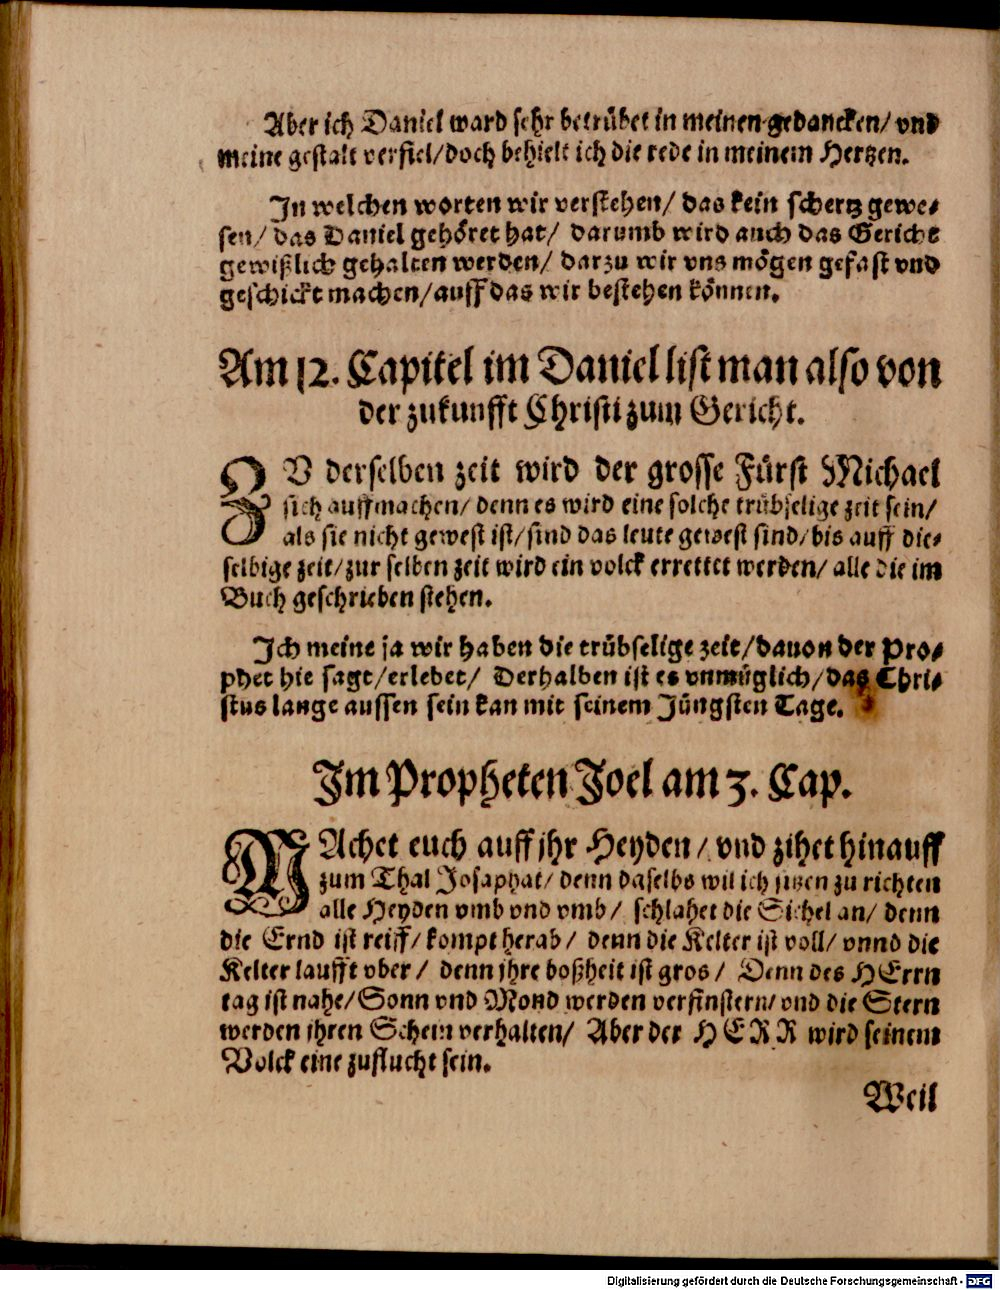 Aber ich Daniel ward sehr betrübet in meinen gedancken/ vnd
meine gestalt verfiel/ doch behielt ich die rede in meinem Hertzen.
In welchen worten wir verstehen/ das kein schertz gewe-
sen/ das Daniel gehöret hat/ darumb wird auch das Gericht
gewißlich gehalten werden/ darzu wir vns mögen gefast vnd
geschickt machen/ auff das wir bestehen können.
Am 12. Capitel im Daniel list man also von
der zukunfft Christi zum Gericht.
ZV derselben zeit wird der grosse Fürst Michael
sich auffmachen/ denn es wird eine solche trübselige zeit sein/
als sie nicht gewest ist/ sind das leute gewest sind/ bis auff die-
selbige zeit/ zur selben zeit wird ein volck errettet werden/ alle die im
Buch geschrieben stehen.
Ich meine ja wir haben die trübselige zeit/ dauon der Pro-
phet hie sagt/ erlebet/ Derhalben ist es vnmüglich/ das Chri-
stus lange aussen sein kan mit seinem Jüngsten Tage.
Im Propheten Joel am 3. Cap.
MAchet euch auff jhr Heyden/ vnd zihet hinauff
zum Thal Josaphat/ denn daselbs wil ich sitzen zu richten
alle Heyden vmb vnd vmb/ schlahet die Sichel an/ denn
die Ernd ist reiff/ kompt herab/ denn die Kelter ist voll/ vnnd die
Kelter laufft vber/ denn jhre boßheit ist gros/ Denn des HErrn
tag ist nahe/ Sonn vnd Mond werden verfinstern/ vnd die Stern
werden jhren Schein verhalten/ Aber der HERR wird seinem
Volck eine zuflucht sein.
Weil
Digitalisierung gefördert durch die Deutsche Forschungsgemeinschaft - DFG